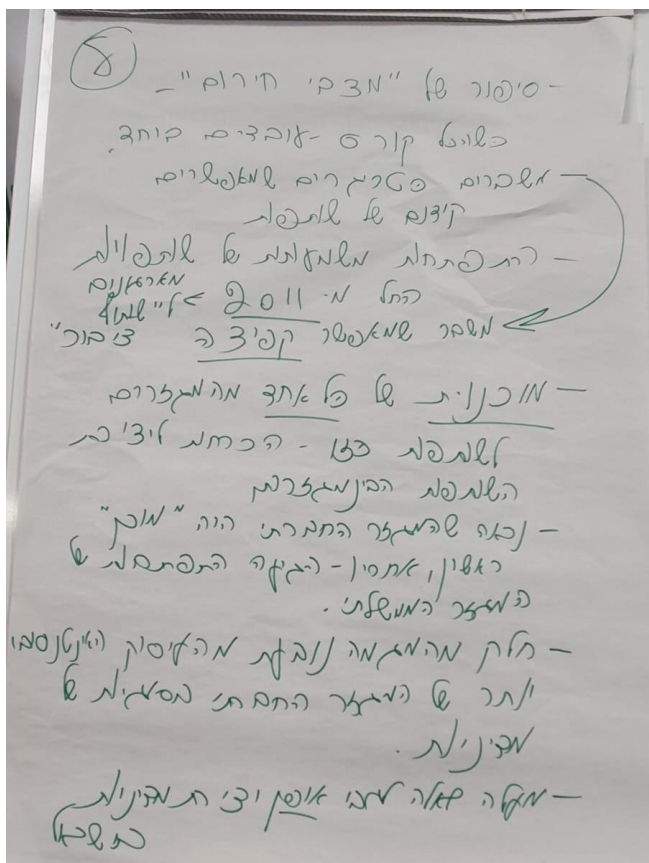 8
- סיפור של "מצבי חירום" -
כשהכל קורס - עובדים ביחד.
- משברים כטריגרים שמאפשרים
קידום של שותפות
- התפתחות משמעותית של שותפויות
החל מ- 2011 > מארגונים ל"שיתוף
משבר שמאפשר קפיצה ציבור"
- מוכננות של כל אחד מהמגזרים
לשותפות כזו - הכרחית ליצירת
השותפות הבינמגזרית
- נראה שהמגזר החברתי היה "מוכן"
ראשון, אחריו - הגיעה התפתחות של
המגזר הממשלתי.
- חלק מהמגמה נובעת מהעיסוק האינטנסיבי
יותר של המגזר החברתי בסוגיות של
מדיניות.
- מעלה שאלה לגבי אופן יצירת מדיניות
בישראל